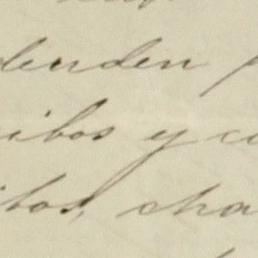 denden p
ibos y co
itos, cha